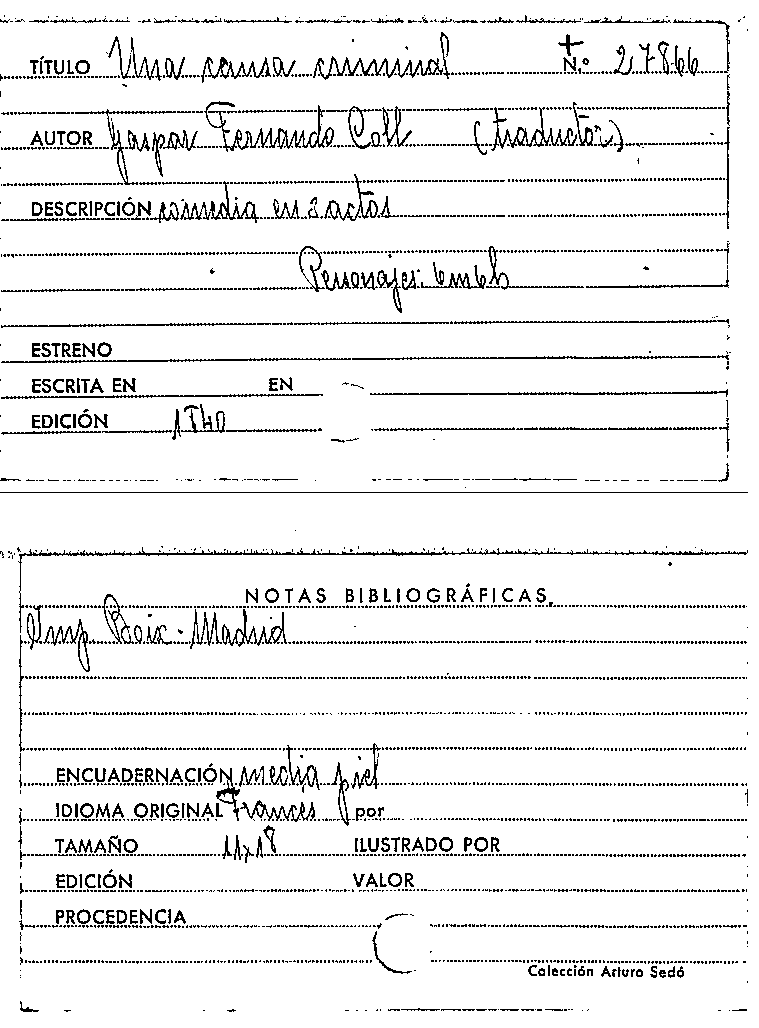 TÍTULO Una causa criminal N.º 27866
AUTOR Gaspar Fernando Coll (traductor)
DESCRIPCIÓN comedia en 3 actos
Personajes: 6m6h
ESTRENO
ESCRITA EN EN
EDICIÓN
NOTAS BIBLIOGRÁFICAS
Imp Boix - Madrid
ENCUADERNACIÓN media piel
IDIOMA ORIGINAL Francés por
TAMAÑO 11x18 ILUSTRADO POR
EDICIÓN VALOR
PROCEDENCIA
Colección Arturo Sedó